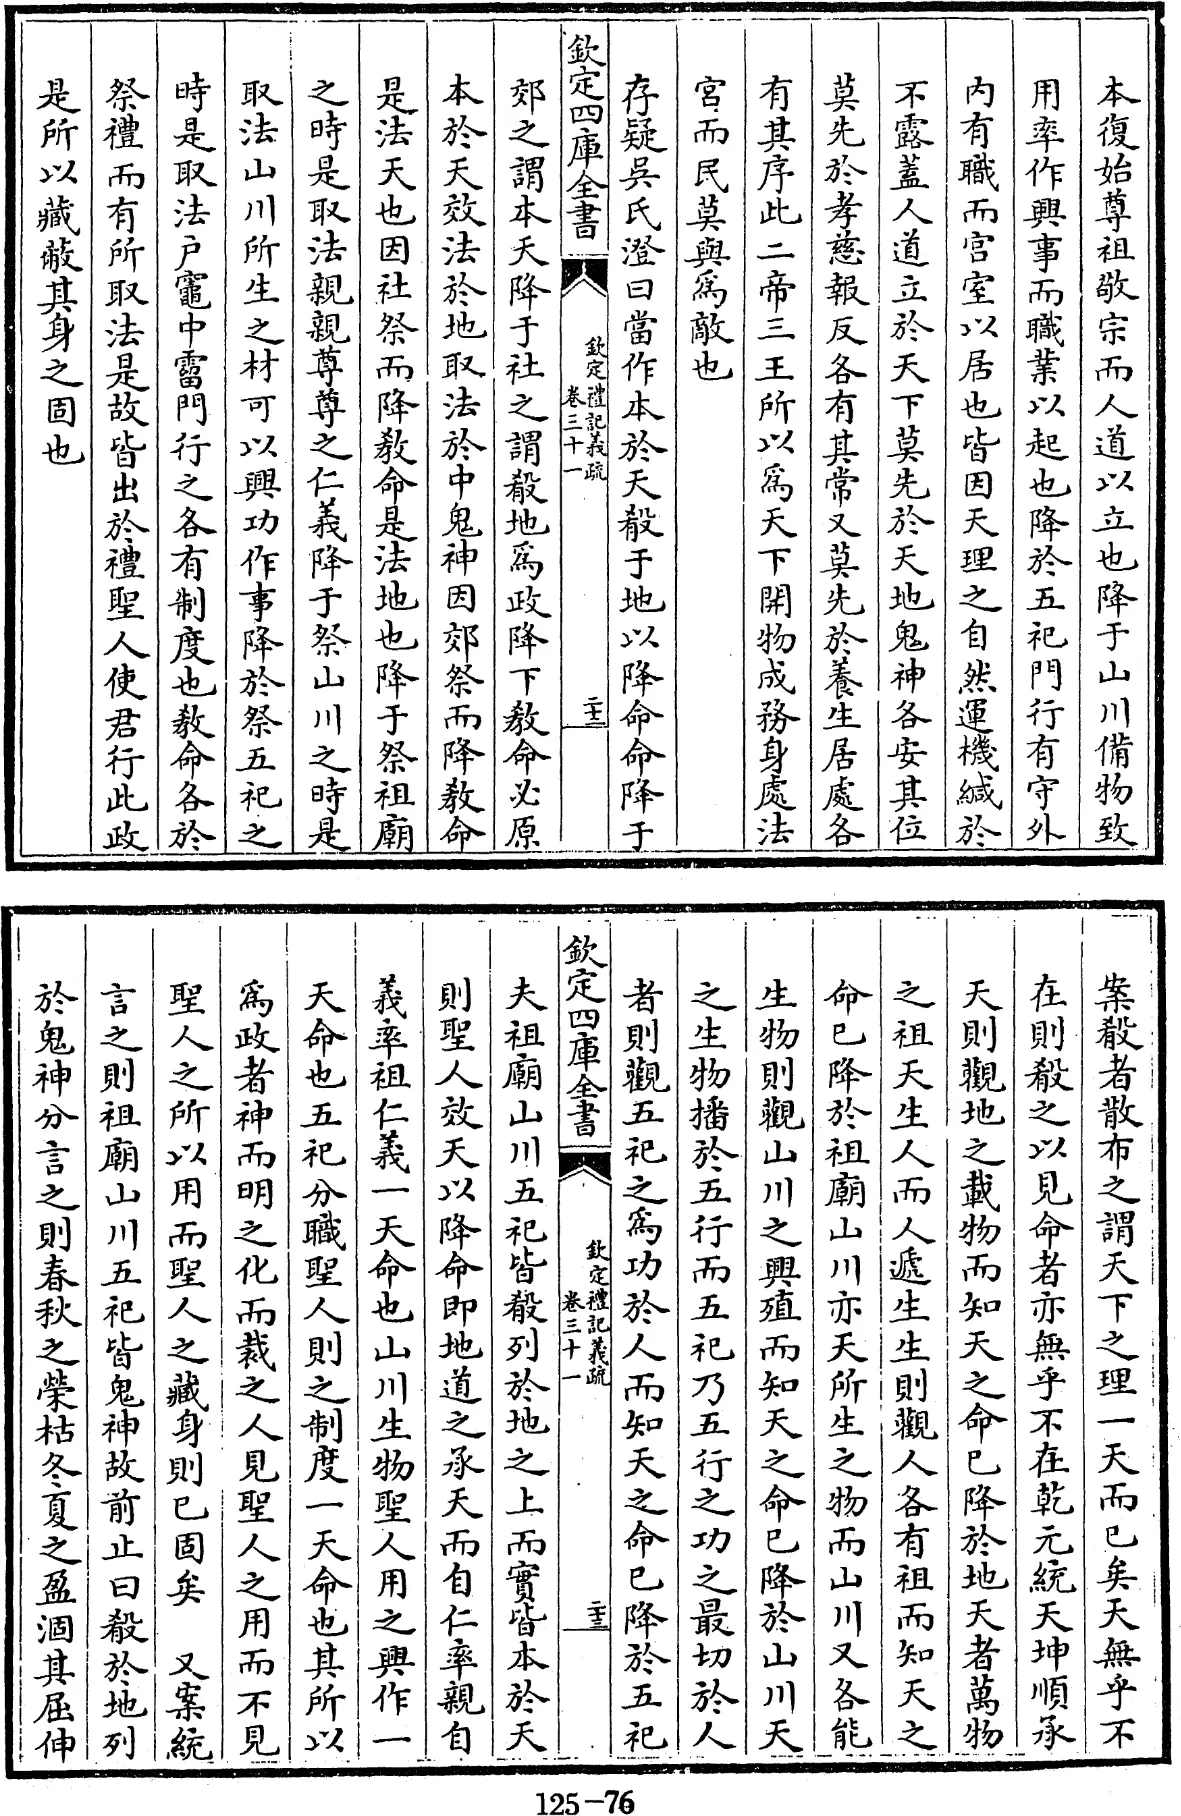 本復始尊祖敬宗而人道以立也降于山川備物致
用率作興事而職業以起也降於五祀門行有守外
内有職而宫室以居也皆因天理之自然運機緘於
不露蓋人道立於天下莫先於天地鬼神各安其位
莫先於孝慈報反各有其常又莫先於養生居處各
有其序此二帝三王所以為天下開物成務身處法
宫而民莫與為敵也
存疑吳氏澄曰當作本於天殽于地以降命命降于
欽定四庫全書
欽定禮記義疏
卷三十一
二十二
郊之謂本天降于社之謂殽地為政降下教命必原
本於天效法於地取法於中鬼神因郊祭而降教命
是法天也因社祭而降教命是法地也降于祭祖廟
之時是取法親親尊尊之仁義降于祭山川之時是
取法山川所生之材可以興功作事降於祭五祀之
時是取法戶竈中霤門行之各有制度也教命各於
祭禮而有所取法是故皆出於禮聖人使君行此政
是所以藏蔽其身之固也
案殽者散布之謂天下之理一天而已矣天無乎不
在則殽之以見命者亦無乎不在乾元統天坤順承
天則觀地之載物而知天之命已降於地天者萬物
之祖天生人而人遞生生則觀人各有祖而知天之
命已降於祖廟山川亦天所生之物而山川又各能
生物則觀山川之興殖而知天之命已降於山川天
之生物播於五行而五祀乃五行之功之最切於人
者則觀五祀之為功於人而知天之命已降於五祀
欽定四庫全書
欽定禮記義疏
卷三十一
二十三
夫祖廟山川五祀皆殽列於地之上而實皆本於天
則聖人效天以降命即地道之承天而自仁率親自
義率祖仁義一天命也山川生物聖人用之興作一
天命也五祀分職聖人則之制度一天命也其所以
為政者神而明之化而裁之人見聖人之用而不見
聖人之所以用而聖人之藏身則已固矣　又案統
言之則祖廟山川五祀皆鬼神故前止曰殽於地列
於鬼神分言之則春秋之榮枯冬夏之盈涸其屈伸
125-76